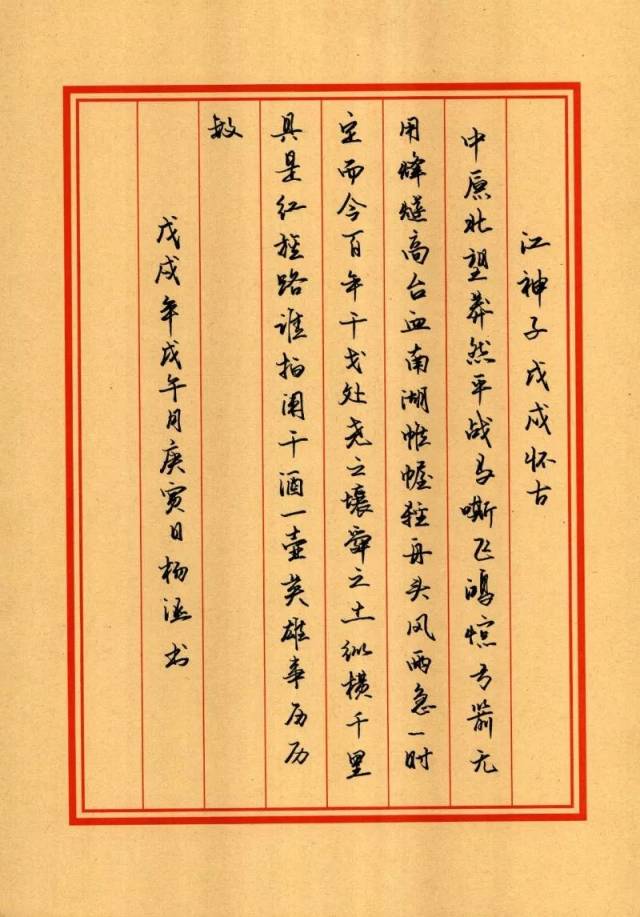 江神子戊戌怀古
中原北望莽然平战马嘶飞鸿惊弓箭无
用烽燧高台血南湖帷幄轻舟头风雨急一时
定而今百年干戈处尧之壤舜之土纵横千里
具是红旌路谁拍阑干酒一壶英雄事历历
数
戊戌年戊午月庚寅日杨涵书